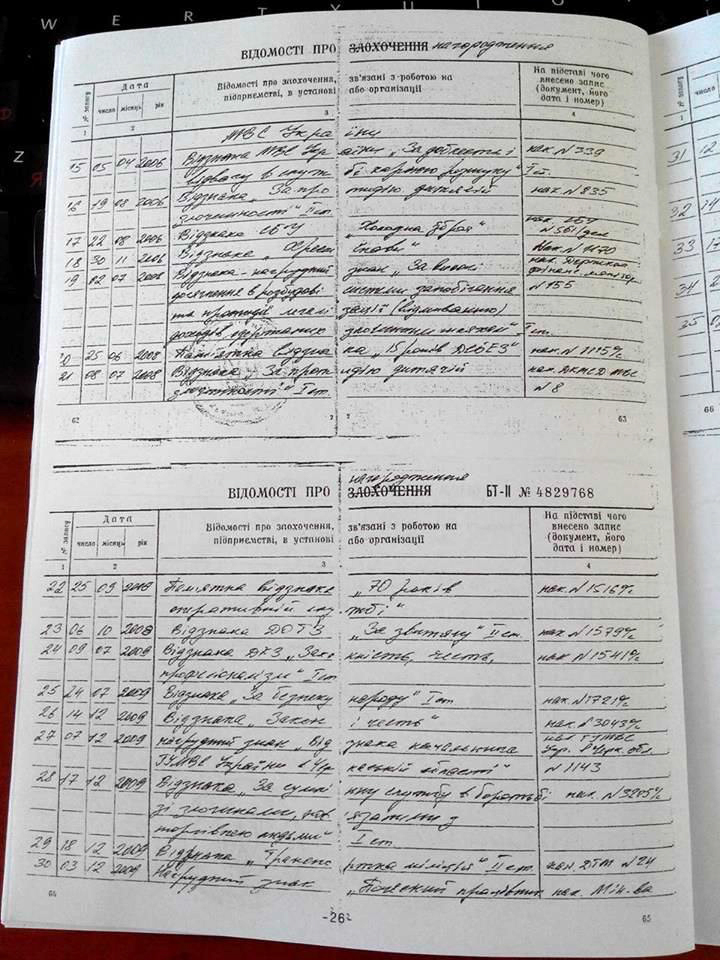 ВІДОМОСТІ ПРО ЗАОХОЧЕННЯ нагородження
№ запису Дата Відомості про заохочення, зв'язані з роботою на На підставі чого
число місяць рік підприємстві, в установі або організації внесено запис
(документ, його
дата і номер)
1 2 3 4
МВС України
15 05 04 2006 Відзнака МВС України „За доблесть і нак. N 339
відвагу в службі карного розшуку" I ст.
16 19 08 2006 Відзнака „За протидію дитячій нак. N 835
злочинності" II ст.
17 22 08 2006 Відзнака СБУ „Холодна зброя" нак. СБУ
N 561/дск
18 30 11 2006 Відзнака „Хрест Слави" нак. N 1470
19 02 07 2008 Відзнака - нагрудний знак „За вагомі нак. Держком
досягнення в розбудові системи запобігання фінанс. монітор.
та протидії легалізації (відмиванню) N 155
доходів, одержаних злочинним шляхом", I ст.
20 25 06 2008 Пам'ятна відзнака „15 років ДСБЕЗ" нак. N 1115 о/с
21 08 07 2008 Відзнака „За протидію дитячій нак. ДКМСД МВС
злочинності" I ст. N 8
62 63
нагородження
ВІДОМОСТІ ПРО ЗАОХОЧЕННЯ БТ-II № 4829768
№ запису Дата Відомості про заохочення, зв'язані з роботою на На підставі чого
число місяць рік підприємстві, в установі або організації внесено запис
(документ, його
дата і номер)
1 2 3 4
22 25 09 2008 Пам'ятна відзнака „70 років нак. N 1516 о/с
оперативній службі"
23 06 10 2008 Відзнака ДОТЗ „За звитягу" II ст. нак. N 1579 о/с
24 09 07 2009 Відзнака ДКЗ „Законність, честь, нак. N 1541 о/с
професіоналізм" I ст.
25 24 07 2009 Відзнака „За безпеку народу" I ст. нак. N 1721 о/с
26 14 12 2009 Відзнака „Закон і честь" нак. N 3043 о/с
27 07 12 2009 нагрудний знак „Відзнака начальника нак ГУМВС
ГУМВС України в Черкаській області" Укр. в Черк. обл.
N 1143
28 17 12 2009 Відзнака „За сумлінну службу в боротьбі нак. N 3205 о/с
зі злочинами, пов'язаними з
торгівлею людьми" I ст.
29 18 12 2009 Відзнака „Транспортна міліція" II ст. нак. ДТМ N 24
30 03 12 2009 Нагрудний знак „Почесний працівник нак. Мін-ва
64 -26- 65
31 12
32 14
33 17
34 2
35 0
66